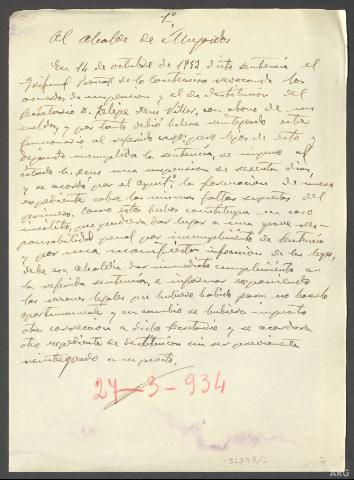 1º
Al Alcalde de Mugardos
En 14 de octubre de 1932 dictó sentencia el
Tribunal de lo Contencioso revocando los
acuerdos de suspensión y el de destitución del
Secretario D. Felipe Deus Villar, con abono de sus
sueldos, y por tanto debió haberse reintegrado este
funcionario al referido cargo; pero lejos de esto y
dejando incumplida la sentencia, se impuso al
citado Sr. Deus una suspensión de sesenta días,
y se acordó por el Ayunt.º la formación de nuevo
expediente sobre las mismas faltas supuestas del
Como estos hechos constituyen un caso
insólito, que pudiera dar lugar a una grave res-
ponsabilidad penal por incumplimiento de sentencia
y por una manifiesta infracción de las leyes,
debe esa Alcaldía dar inmediato cumplimiento a
la referida sentencia, e informar exponiendo
las razones legales que hubiese habido para no hacerlo
oportunamente y en cambio se hubiera impuesto
otra corrección a dicho Secretario y se acordara
otro expediente de destitución sin ser previamente
reintegrado a su puesto.
27-3-934
ARG